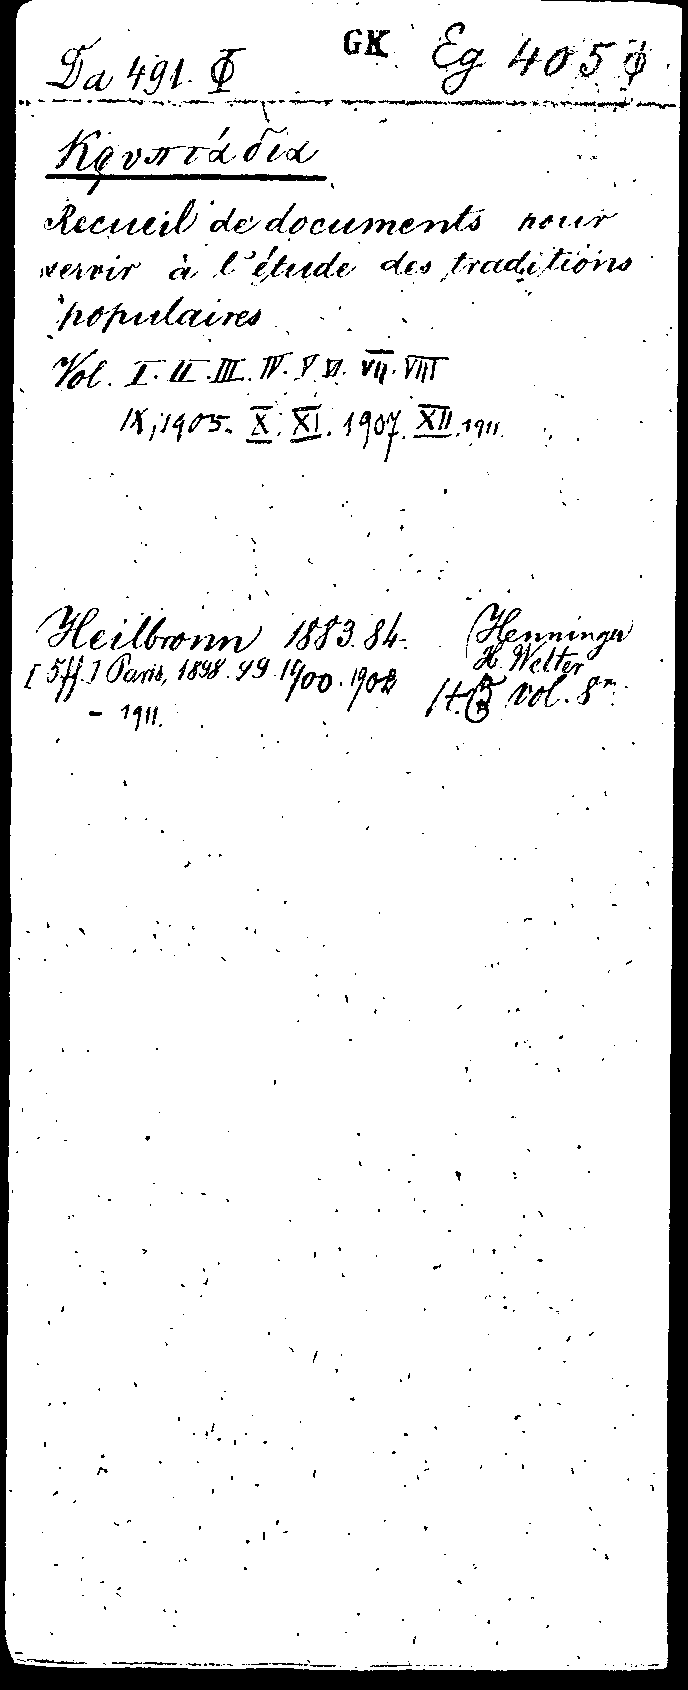 Da 491. Φ GK Eg 405 ϕ
Κρυπτάδια
Recueil de documents pour
servir à l'étude des traditions
populaires
Vol. I. II. III. IV. V VI. VII. VIII
IX, 1905. X. XI. 1907. XII. 1911.
Heilbronn 1883. 84. (Henninger
H. Welter
[5ff.] Paris, 1898. 99. 1900. 1902
vol. 8°
– 1911.